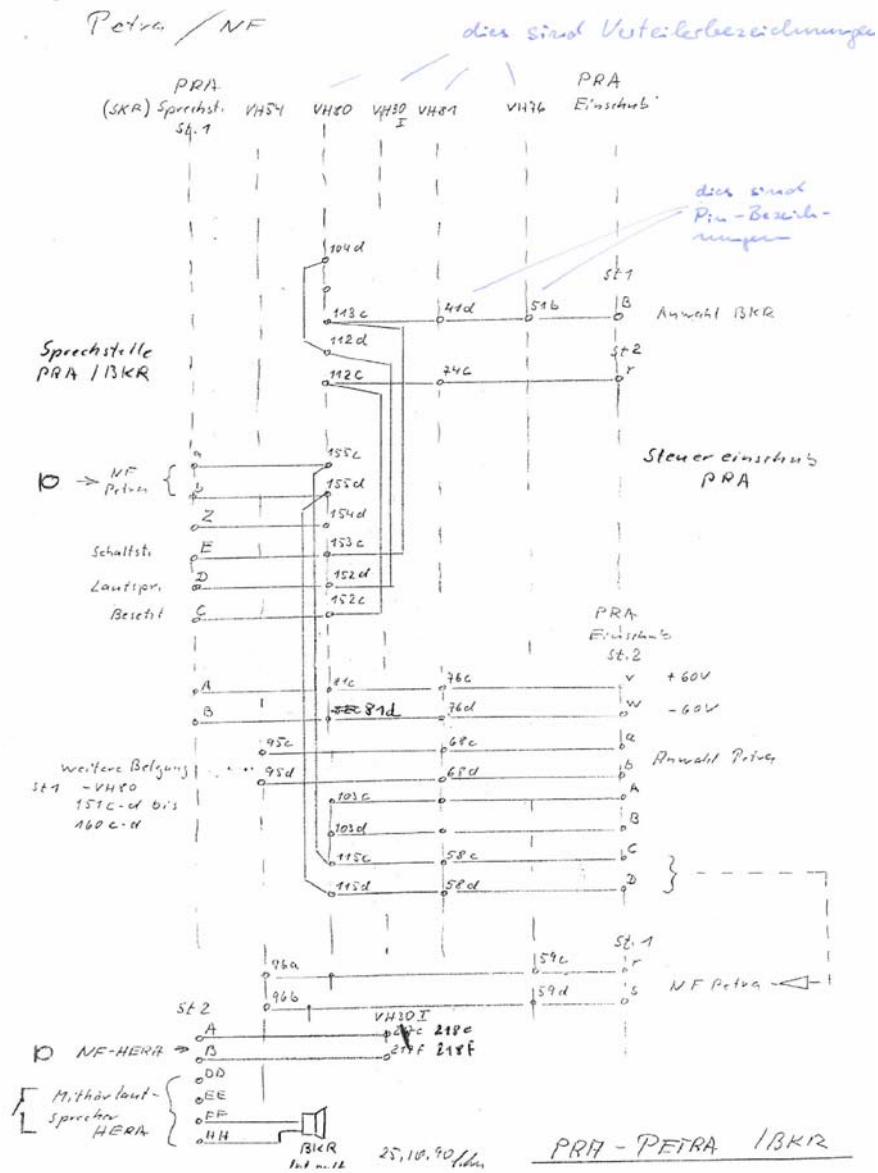 Petra / NF
dies sind Verteilerbezeichnungen
PRA
(SKR) Sprechst.
St. 1
VH54
VH80
VH30
I
VH81
VH76
PRA
Einschub
dies sind
Pin-Bezeich-
nungen
104d
St 1
113c
41d
51b
B
Anwahl BKR
112d
St 2
112c
74c
r
Sprechstelle
PRA / BKR
Steuereinschub
PRA
a
155c
NF
Petra
b
155d
Z
154d
Schaltst.
E
153c
Lautspr.
D
152d
Besetzt
C
152c
PRA
Einschub
St. 2
A
81c
76c
v
+ 60V
B
81d
76d
w
- 60V
95c
68c
a
Anwahl Petra
95d
68d
b
weitere Belgung
St 1 - VH80
151c-d bis
160c-d
103c
A
103d
B
115c
58c
C
115d
58d
D
St. 1
96a
59c
r
NF Petra
96b
59d
s
St 2
VH30 I
A
217c 218c
NF-HERA
B
217f 218f
DD
Mithörlaut-
sprecher
HERA
EE
FF
HH
BKR
25.10.90
PRA - PETRA / BKR